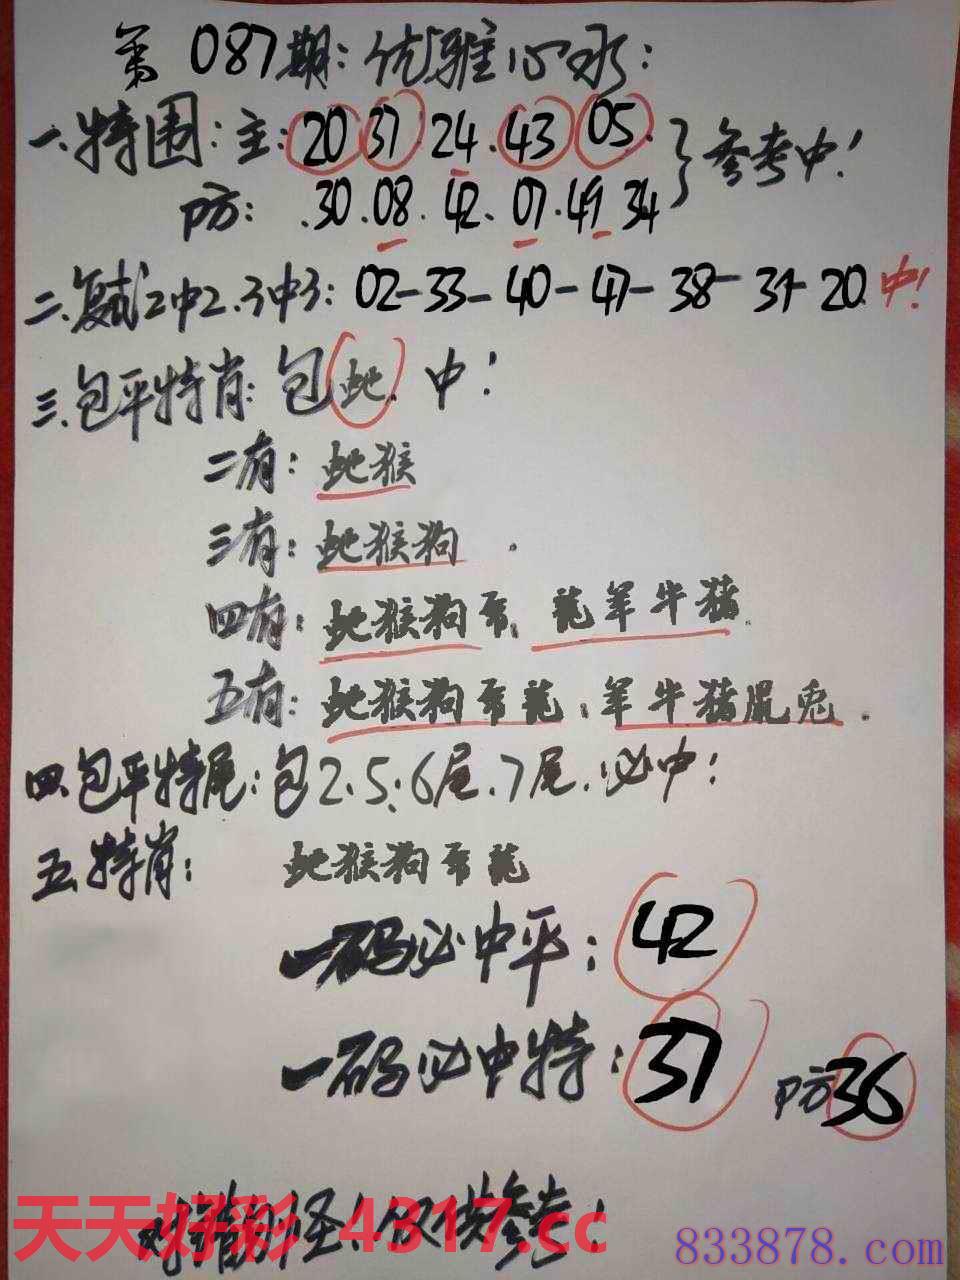 第087期:优雅心水:
一.特围:主:20 37 24.43 05.}参考中!
防:.30.08.42.07.49 34
二.复试2中2.3中3:02-33-40-47-38-31-20.中!
三.包平特肖:包蛇.中!
二有:蛇猴
三有:蛇猴狗.
四有:蛇猴狗.龍羊牛猪.
五有:蛇猴狗龍.羊牛猪鼠兎.
四.包平特尾:包2.5.6尾.7尾.必中!
五.特肖:蛇猴狗龍
一码必中平:42
一码必中特:37 防36
料错勿怪!仅供参考!
天天好彩 4317.cc
833878.com